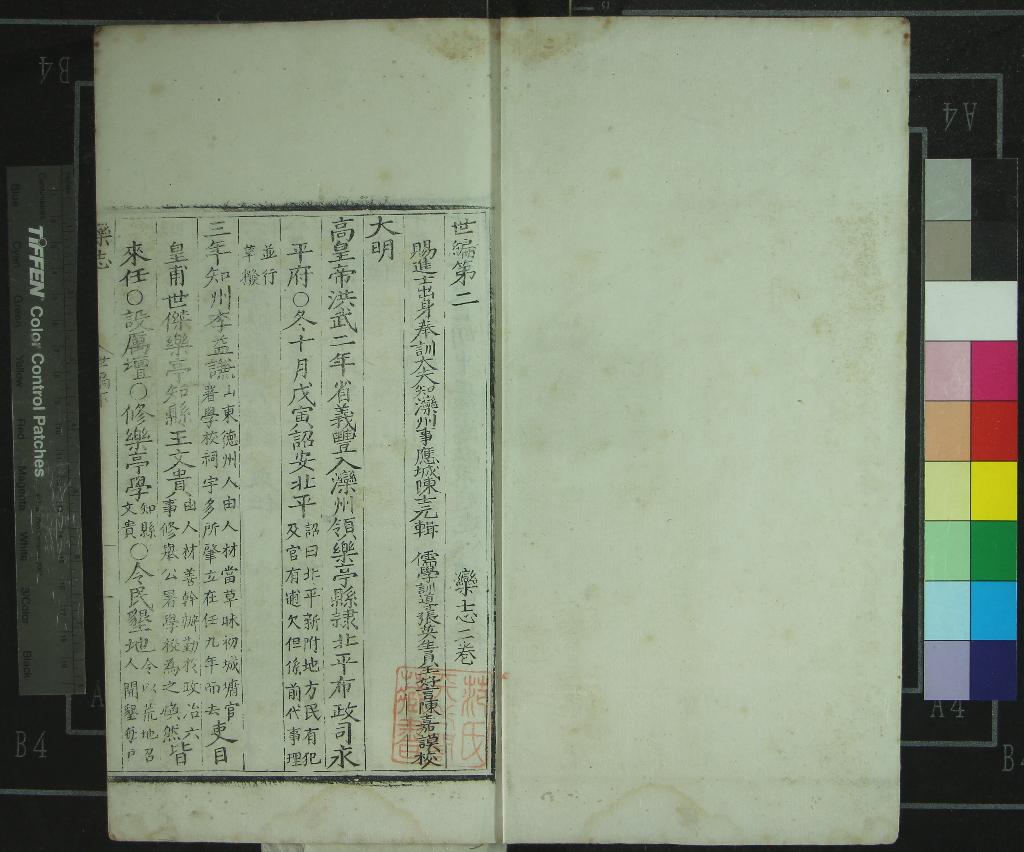 世編第二　欒志二卷
賜進士出身奉訓大夫知灤州事應城陳士元輯　儒學訓導張英生員言陳嘉謨校
大明
高皇帝洪武二年省義豐入灤州領樂亭縣隷北平布政司永
平府○冬十月戊寅詔安北平詔曰北平新附地方民有犯
及官有逋欠但係前代事理
並行
革撥
三年知州李益謙山東德州人由人材當草昧初城廨官
署學校祠宇多所肇立在任九年而去吏目
皇甫世傑樂亭知縣王文貴由人材善幹辦勤於政治六
事修舉公署學校為之煥然皆
來任○設厲壇○修樂亭學知縣
文貴○令民墾地令以荒地召
人開墾每戶
欒志
世編
范氏
B4
A4
B4
A4
TIFFEN Color Control Patches
Blue
Cyan
Green
Yellow
Red
Magenta
White
3/Color
Black